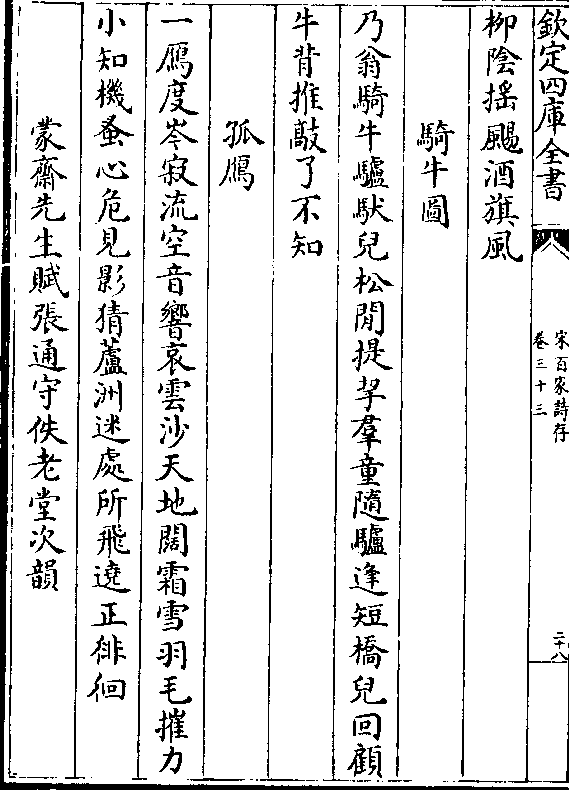 欽定四庫全書
宋百家詩存
卷三十三
二十八
柳陰揺颺酒旗風
騎牛圖
乃翁騎牛驢馱兒松閒提挈羣童隨驢逢短橋兒回顧
牛背推敲了不知
孤鴈
一鴈度岑寂流空音響哀雲沙天地闊霜雪羽毛摧力
小知機蚤心危見影猜蘆洲迷處所飛遶正徘徊
蒙齋先生賦張通守佚老堂次韻